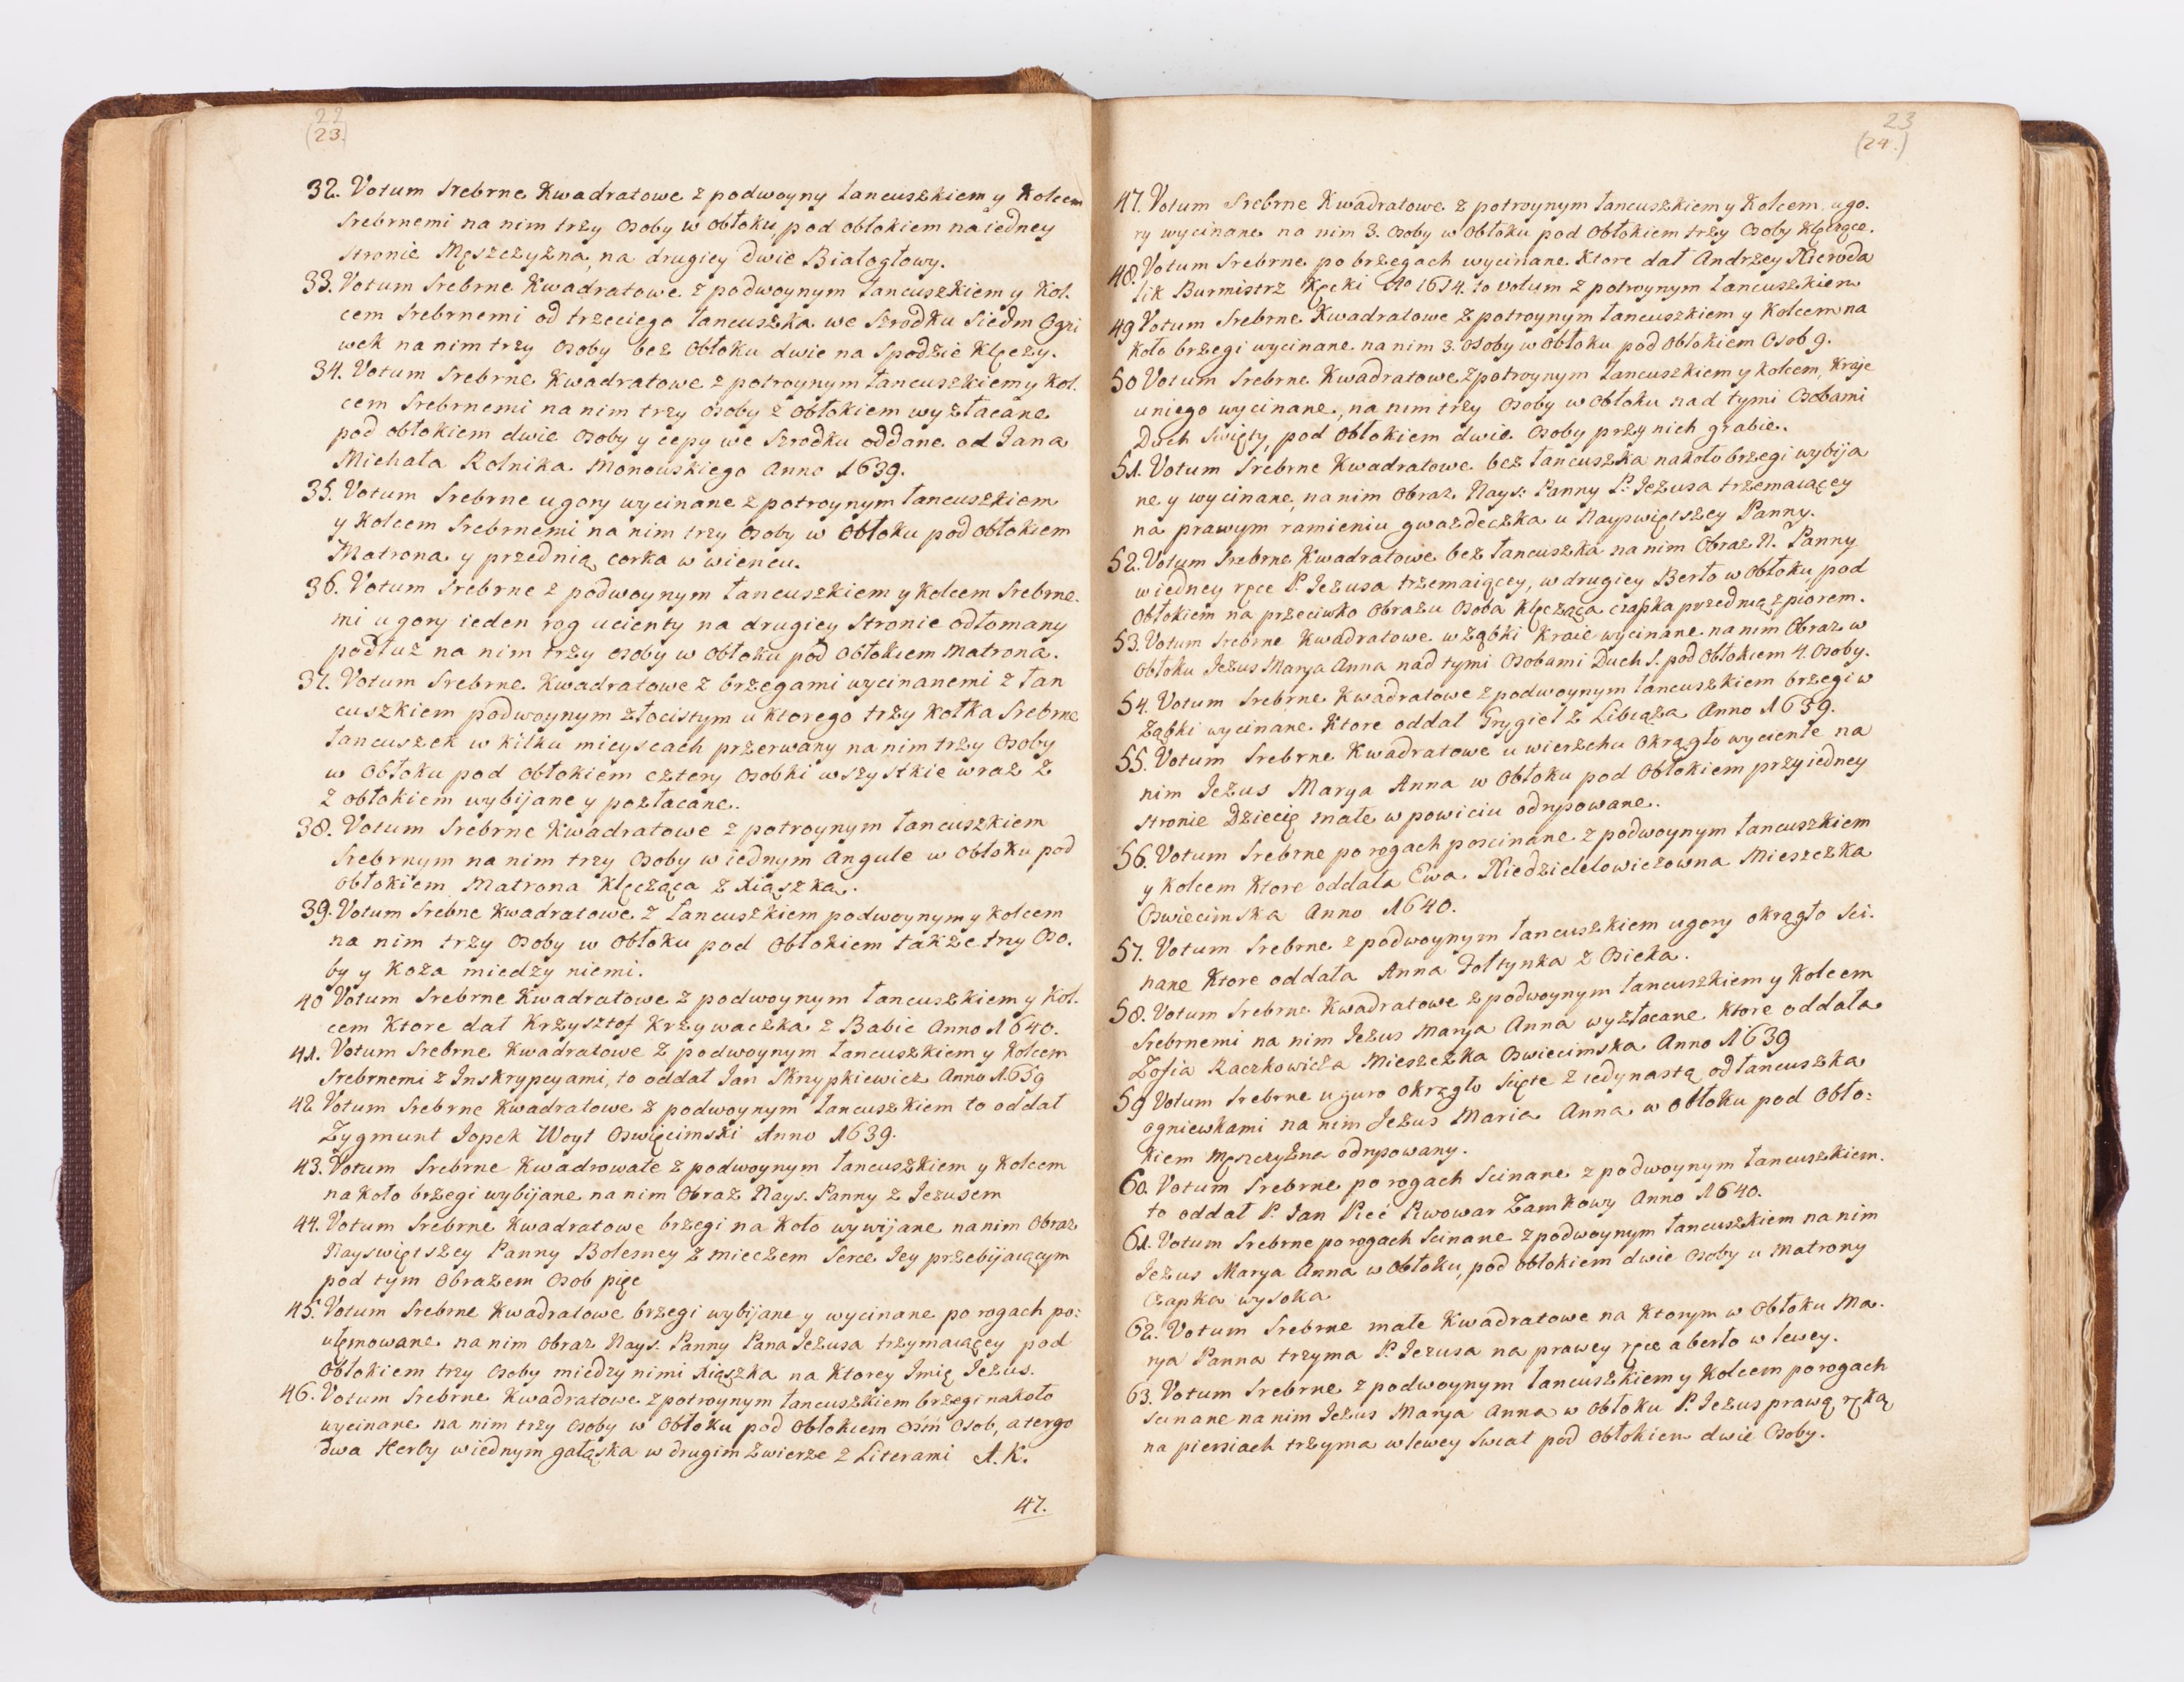 22
(23.)
32. Votum Srebrne Kwadratowe z podwoyny łancuszkiem y Kolcem
Srebrnemi na nim trzy Osoby w obłoku, pod obłokiem na iedney
stronie Męszczyzna, na drugiey dwie Białogłowy.
33. Votum Srebrne Kwadratowe z podwoynym łancuszkiem y Kol.
cem Srebrnemi od trzeciego łancuszka we Szrodku Siedm Ogni
wek na nim trzy Osoby bez Obłoku dwie na Spodzie Klęczy.
34. Votum Srebrne Kwadratowe z potroynym łancuszkiem y Kol.
cem Srebrnemi na nim trzy osoby z obłokiem wyzłacane
pod obłokiem dwie Osoby y cepy we Szrodku oddane od Jana
Michała Rolnika Monowskiego Anno 1639.
35. Votum Srebrne ugory wycinane z potroynym łancuszkiem
y Kolcem Srebrnemi na nim trzy Osoby w Obłoku pod obłokiem
Matrona y przednią corka w wiencu.
36. Votum Srebrne z podwoynym łancuszkiem y Kolcem Srebrne.
mi ugory ieden rog ucienty na drugiey Stronie odłomany
podłuż na nim trzy osoby w obłoku pod Obłokiem Matrona.
37. Votum Srebrne Kwadratowe z brzegami wycinanemi z łan
cuszkiem podwoynym złocistym u ktorego trzy Kołka Srebrne
łancuszek w Kilku mieyscach przerwany na nim trzy Osoby
w Obłoku pod Obłokiem cztery Osobki wszystkie wraz z
z obłokiem wybijane y pozłacane.
38. Votum Srebrne Kwadratowe z potroynym łancuszkiem
Srebrnym na nim trzy Osoby w iednym Angule w Obłoku pod
obłokiem Matrona Klęcząca z Xiąszką.
39. Votum Srebne Kwadratowe z Łancuszkiem podwoynym y Kolcem
na nim trzy Osoby w Obłoku pod Obłokiem także trzy Oso.
by y Koza miedzy niemi.
40 Votum Srebrne Kwadratowe z podwoynym łancuszkiem y Kol.
cem Ktore dał Krzysztof Krzywaczka z Babic Anno 1640.
41. Votum Srebrne Kwadratowe z podwoynym łancuszkiem y Kolcem
Srebrnemi z Inskrypcyami, to oddał Jan Skrzypkiewicz Anno 1639
42 Votum Srebrne Kwadratowe z podwoynym łancuszkiem to oddał
Zygmunt Jopek Woyt Oswięcimski Anno 1639.
43. Votum Srebrne Kwadrowate z podwoynym łancuszkiem y Kolcem
na Koło brzegi wybijane na nim Obraz Nays. Panny z Jezusem
44. Votum Srebrne Kwadratowe brzegi na Koło wywijane na nim Obraz
Nayswiętszey Panny Bolesney z mieczem Serce Jey przebijaiącym
pod tym Obrazem Osob pięc
45. Votum Srebrne Kwadratowe brzegi wybijane y wycinane po rogach po:
ułęmowane na nim Obraz Nays. Panny Pana Jezusa trzymaiącey pod
Obłokiem trzy Osoby miedzy nimi Xiąszka na Ktorey Jmię Jezus.
46. Votum Srebrne Kwadratowe z potroynym łancuszkiem brzegi nakoło
wycinane na nim trzy Osoby w Obłoku pod Obłokiem Osiń Osob, a tergo
dwa Herby w iednym gałąska w drugim Zwierze z Literami A.K.
47.
23
(24.)
47. Votum Srebrne Kwadratowe z potroynym łancuszkiem y Kolcem, ugo.
ry wycinane na nim 3. Osoby w Obłoku pod Obłokiem trzy Osoby Klęczące.
48. Votum Srebrne po brzegach wycinane Ktore dał Andrzey Nieroda
lik Burmistrz Kęcki Ao 1614. to votum z potroynym łancuszkiem
49 Votum Srebrne Kwadratowe z potroynym łancuszkiem y Kolcem na
Koło brzegi wycinane na nim 3. Osoby w Obłoku pod Obłokiem Osob 9.
50 Votum Srebrne Kwadratowe z potroynym łancuszkiem y kolcem, Kraje
uniego wycinane, na nim trzy Osoby w Obłoku nad tymi Osobami
Duch Swięty, pod Obłokiem dwie Osoby przy nich grabie.
51. Votum Srebrne Kwadratowe bez łancuszka nakoło brzegi wybija
ne y wycinane, na nim Obraz Nays: Panny P: Jezusa trzemaiącey
na prawym ramieniu gwazdeczka u Nayswiętszey Panny.
52. Votum Srebrne Kwadratowe bez łancuszka na nim Obraz N. Panny
w iedney ręce P. Jezusa trzemaiącey, w drugiey Berło w Obłoku pod
Obłokiem na przeciwko Obrazu Osoba Klęcząca czapka przednią z piorem.
53. Votum Srebrne Kwadratowe w ząbki Kraie wycinane na nim Obraz w
Obłoku Jezus Marya Anna nad tymi Osobami Duch S. pod Obłokiem 4. Osoby.
54. Votum Srebrne Kwadratowe z podwoynym łancuszkiem brzegi w
Ząbki wycinane Ktore oddał Grygiel z Libiąża Anno 1639.
55. Votum Srebrne Kwadratowe u wierzchu Okrągło wyciente na
nim Jezus Marya Anna w Obłoku pod Obłokiem przy iedney
stronie Dziecię małe w powiciu odrysowane.
56. Votum Srebrne po rogach poscinane z podwoynym łancuszkiem
y Kolcem Ktore oddała Ewa Niedzielelowiczowna Mieszczka
Oswiecimska Anno 1640.
57. Votum Srebrne z podwoynym łancuszkiem ugory okrągło Sci.
nane Ktore oddała Anna Foltynka z Osieka.
58. Votum Srebrne Kwadratowe z podwoynym łancuszkiem y Kolcem
Srebrnemi na nim Jezus Marya Anna wyzłacane Ktore oddała
Zofia Raczkowicka Mieszczka Oswiecimska Anno 1639
59 Votum Srebrne uguro Okrągło Sięte z iedynastą od łancuszka
ogniewkami na nim Jezus Maria Anna w Obłoku pod Obło:
kiem Męszczyzna odrysowany.
60. Votum Srebrne po rogach Scinane z podwoynym łancuszkiem.
to oddał P. Jan Pieć Piwowar Zamkowy Anno 1640.
61. Votum Srebrne po rogach Scinane z podwoynym łancuszkiem na nim
Jezus Marya Anna w Obłoku, pod obłokiem dwie Osoby u Matrony
Czapka wysoka
62. Votum Srebrne małe Kwadratowe na Ktorym w Obłoku Ma.
rya Panna trzyma P. Jezusa na prawey ręce a berło w lewey.
63. Votum Srebrne z podwoynym łancuszkiem y Kolcem po rogach
Scinane na nim Jezus Marya Anna w Obłoku P. Jezus prawą ręką
na piersiach trzyma w lewey Swiat pod Obłokiem dwie Osoby.